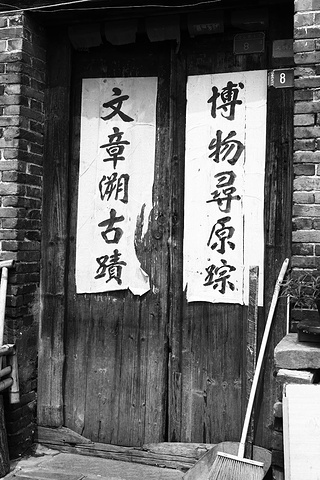 博物尋原踪
文章溯古蹟
8